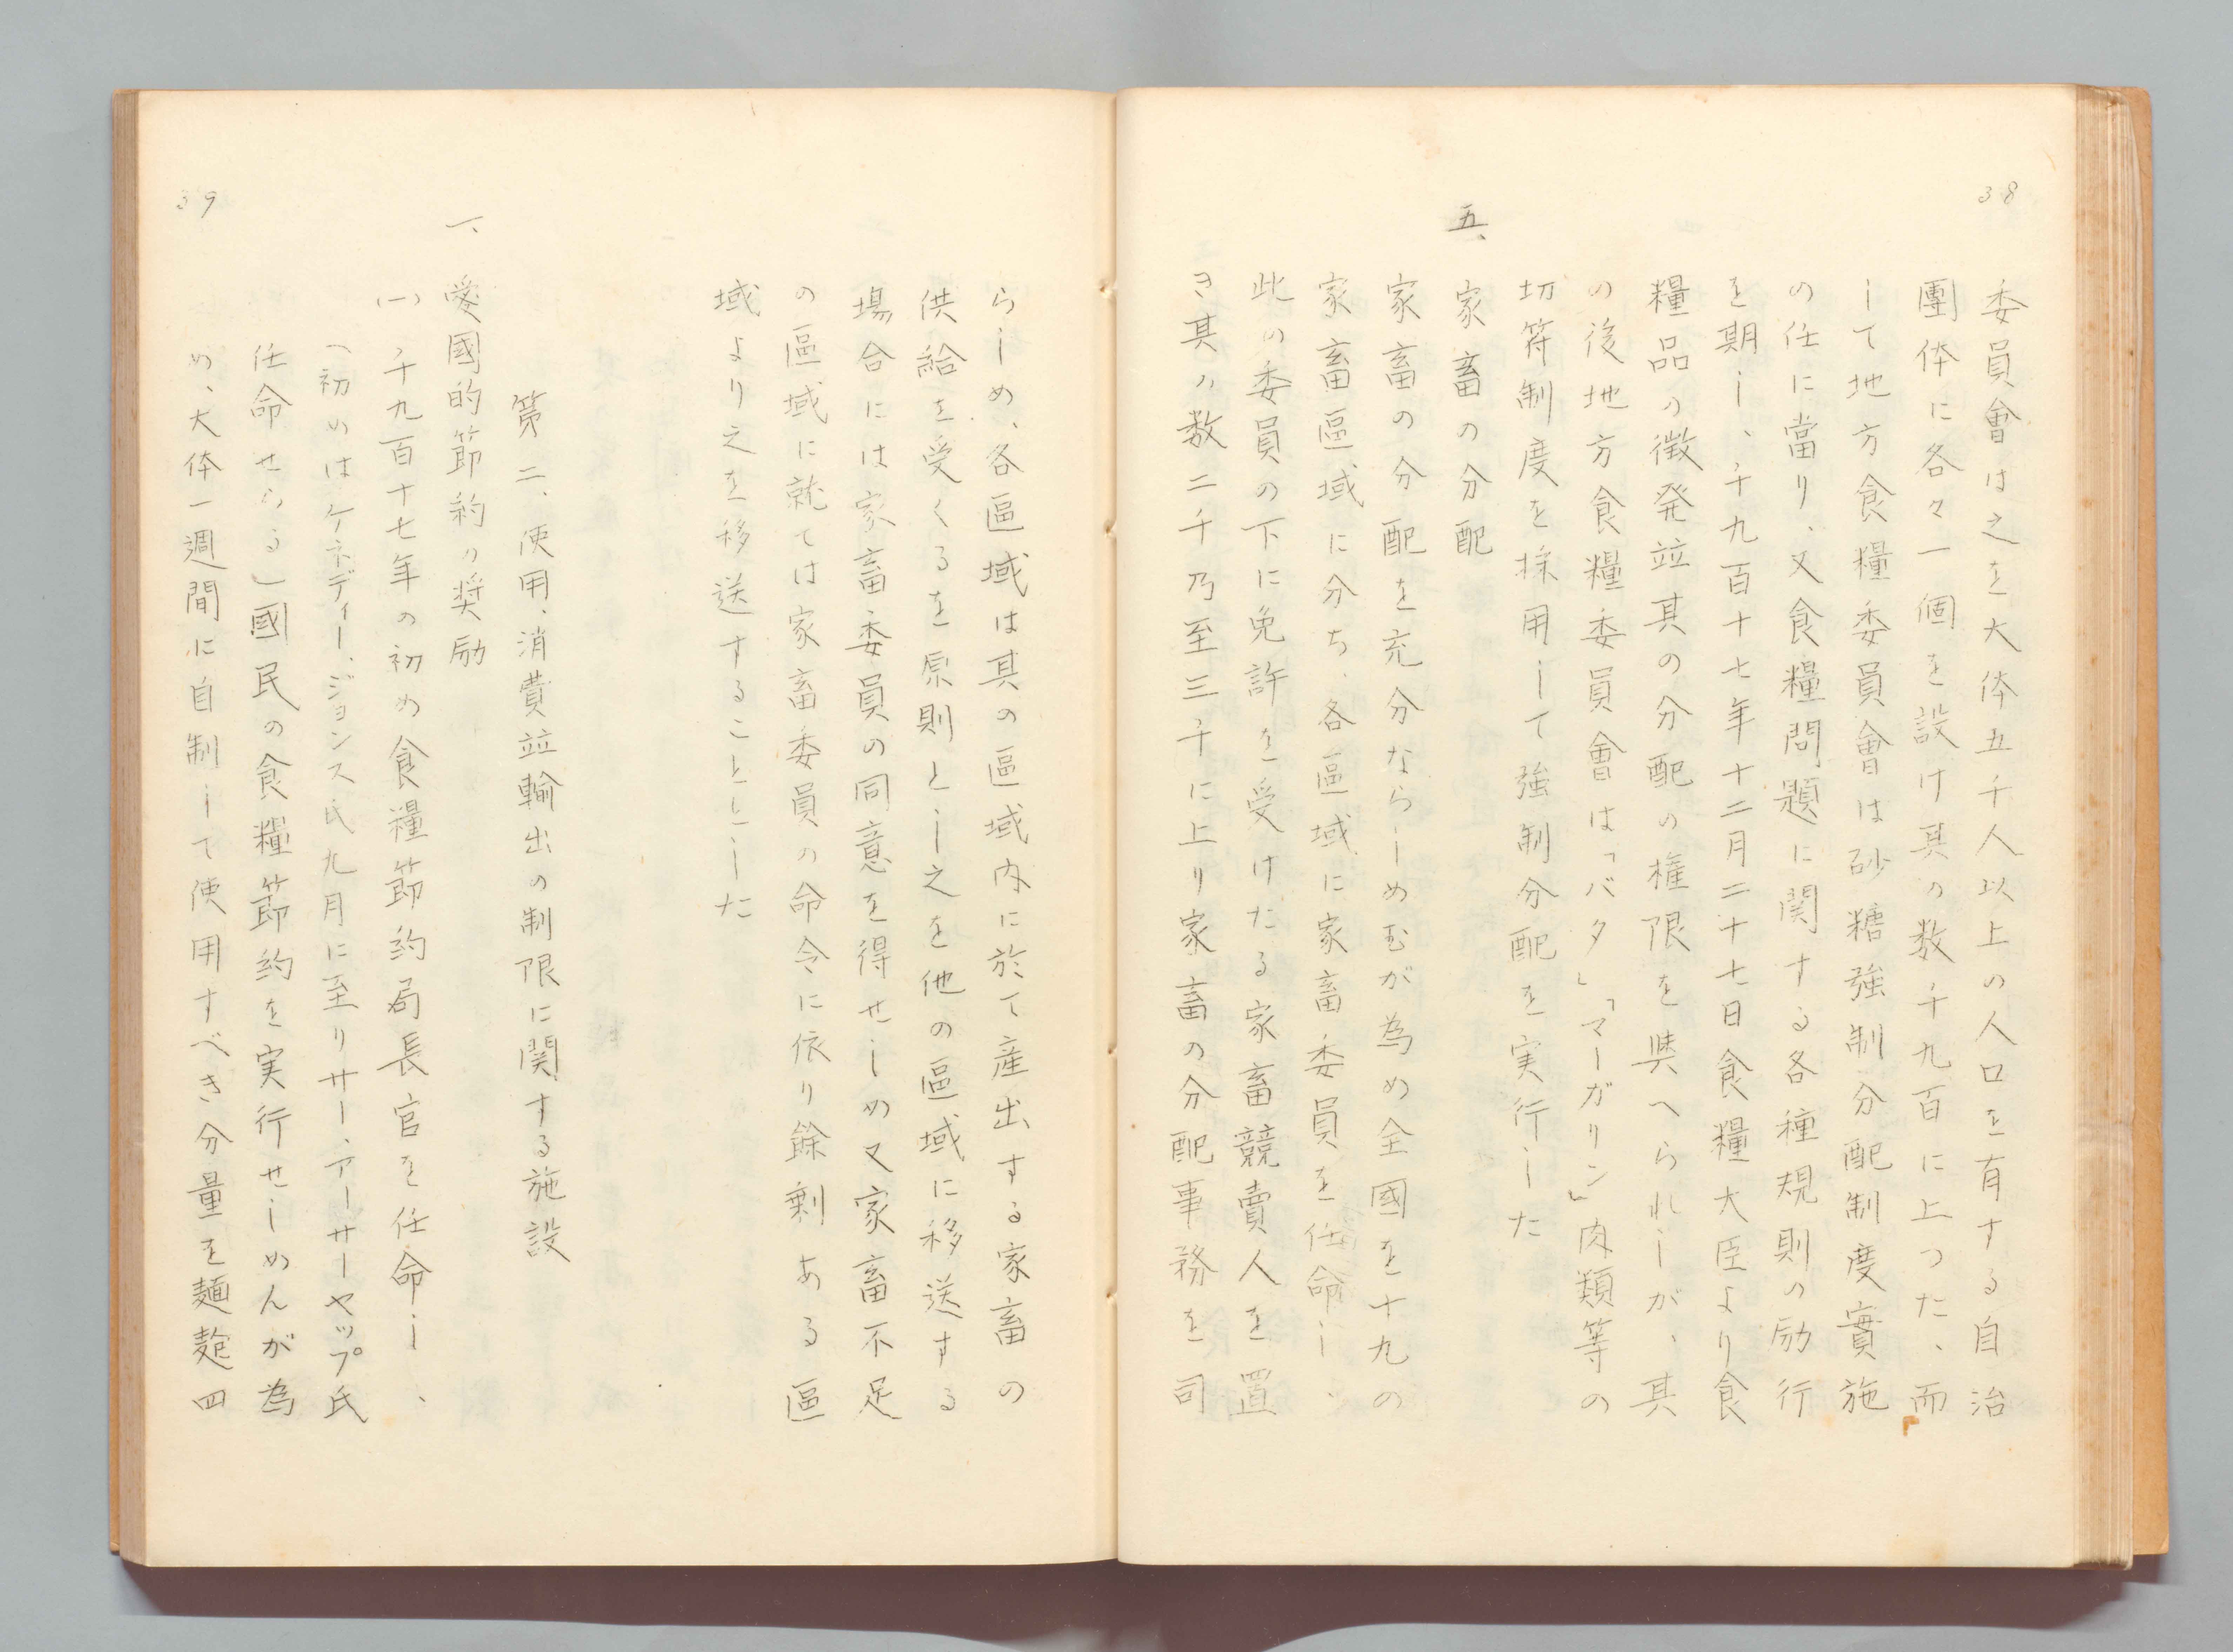 38
委員會は之を大体五千人以上の人口を有する自治
團体に各々一個を設け其の数千九百に上つた、而
して地方食糧委員會は砂糖強制分配制度實施
の任に當り、又食糧問題に関する各種規則の励行
を期し、千九百十七年十二月二十七日食糧大臣より食
糧品の徴発並其の分配の権限を與へられしが、其
の後地方食糧委員會は「バタ」「マーガリン」肉類等の
切符制度を採用して強制分配を実行した
五、家畜の分配
家畜の分配を充分ならしめむが為め全國を十九の
家畜區域に分ち、各區域に家畜委員を任命し、
此の委員の下に免許を受けたる家畜競賣人を置
き其の数二千乃至三千に上り家畜の分配事務を司
らしめ、各區域は其の區域内に於て産出する家畜の
供給を受くるを原則とし之を他の區域に移送する
場合には家畜委員の同意を得せしめ又家畜不足
の區域に就ては家畜委員の命令に依り餘剰ある區
域より之を移送することとした
第二、使用、消費並輸出の制限に関する施設
一、愛國的節約の奨励
(一)千九百十七年の初め食糧節約局長官を任命し、
(初めはケネディー、ジョンス氏九月に至りサー、アーサーヤップ氏
任命せらる)國民の食糧節約を実行せしめんが為
め、大体一週間に自制して使用すべき分量を麺麭四
39